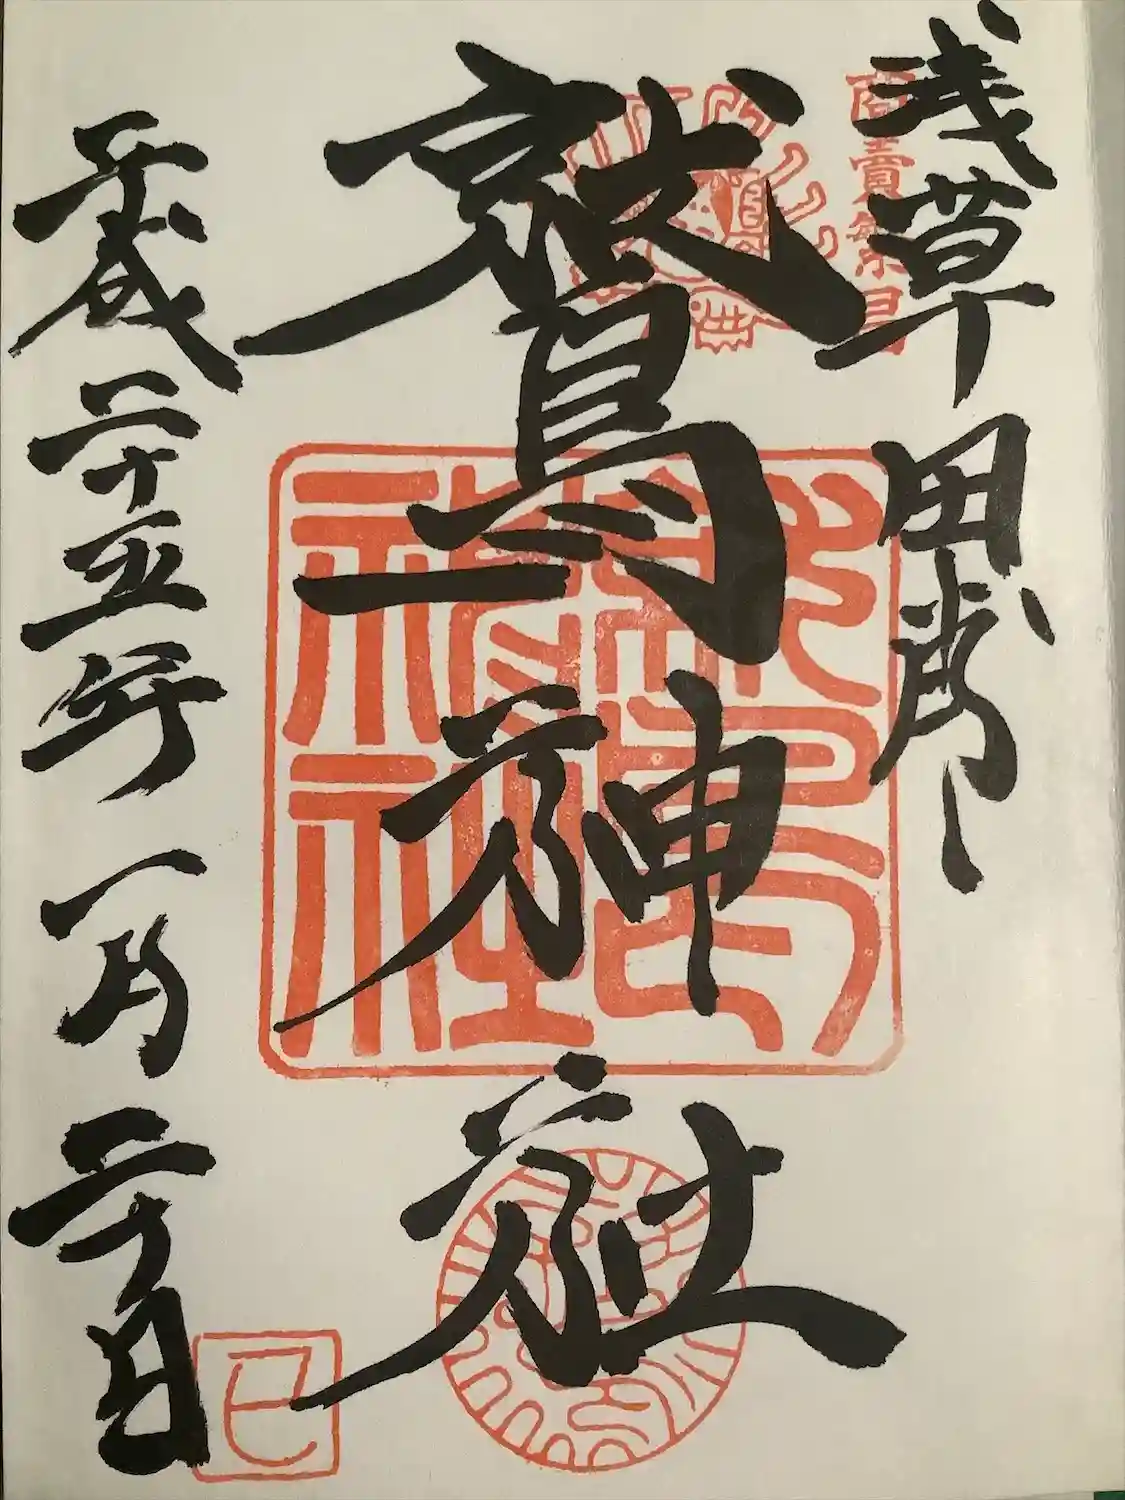 浅草田甫
商賣繁昌
鷲神社
鷲神社
平成二十五年一月二十日
巳